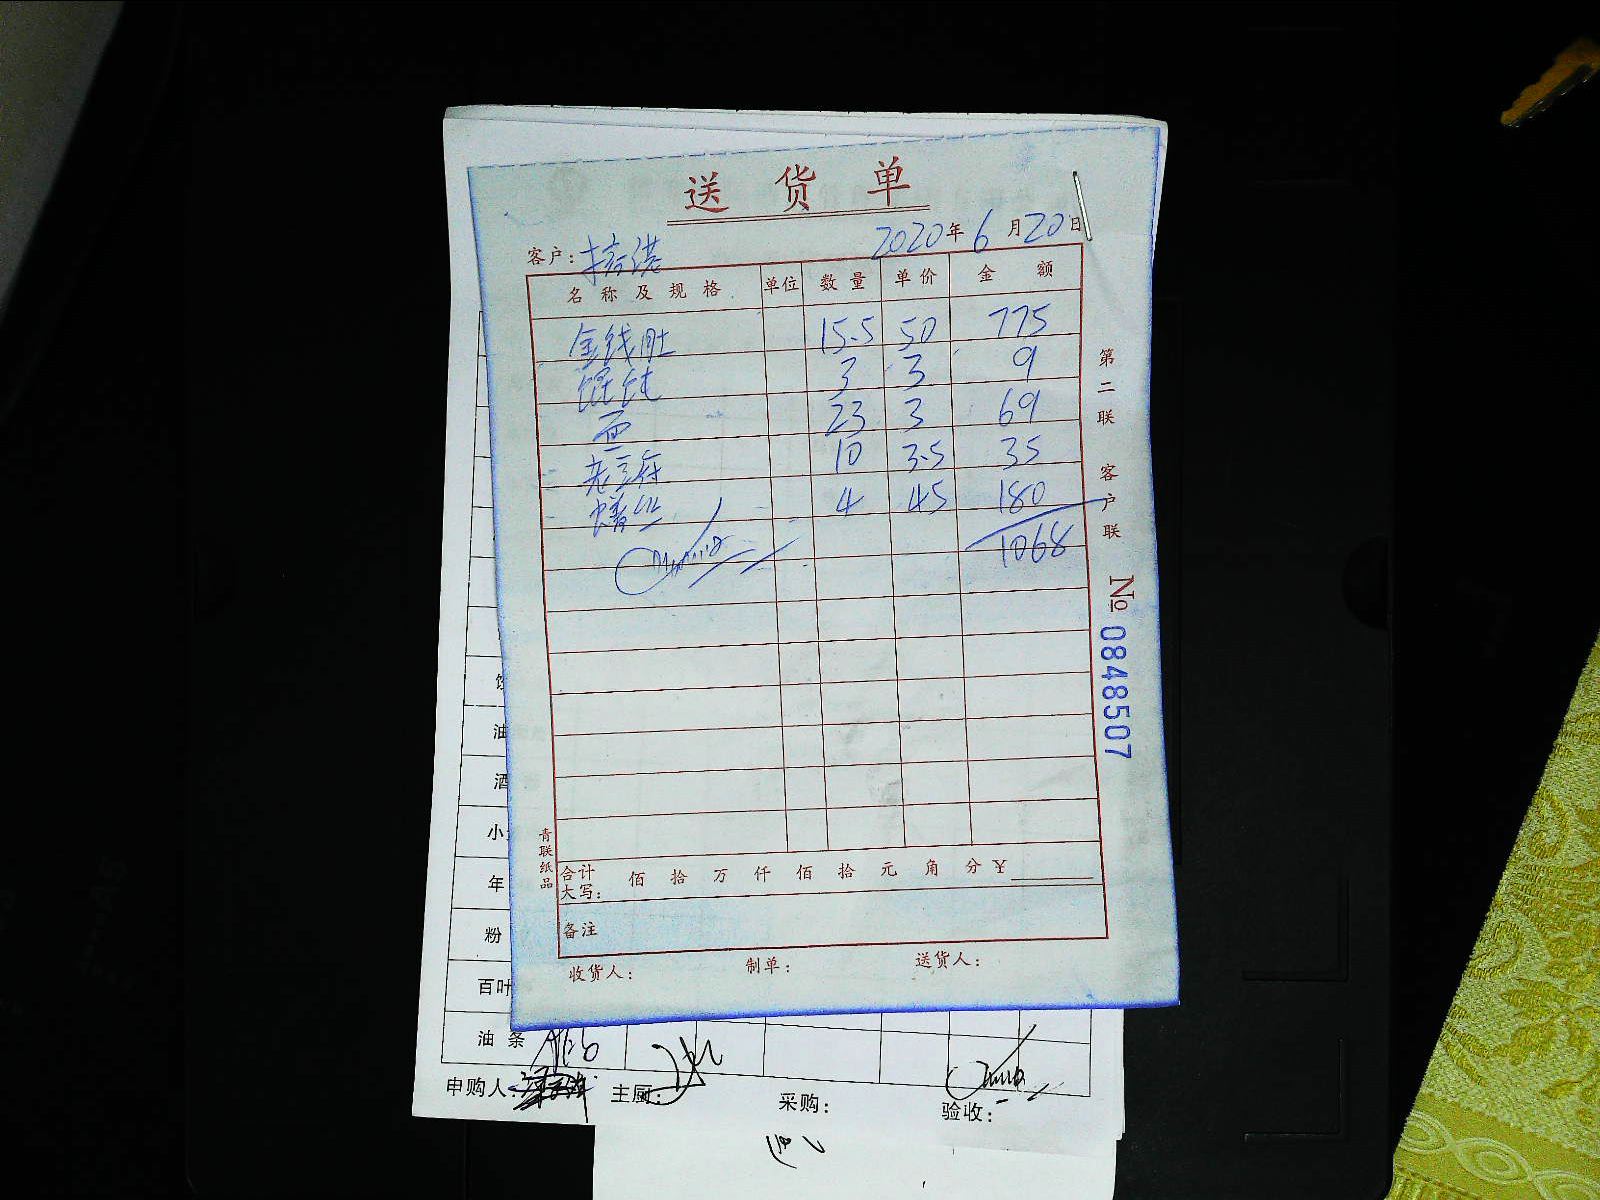 送 货 单
2020年6月20日
客户:
名称及规格 单位 数量 单价 金额
金钱肚 15.5 50 775
馄饨 3 3 9
面 23 3 69
老豆腐 10 3.5 35
鳝丝 4 45 180
1068
第二联 客户联
№ 0848507
青联纸品
合计大写: 佰 拾 万 仟 佰 拾 元 角 分 ¥
备注
收货人: 制单: 送货人:
油
酒
小
年
粉
百叶
油 条
申购人: 主厨: 采购: 验收: